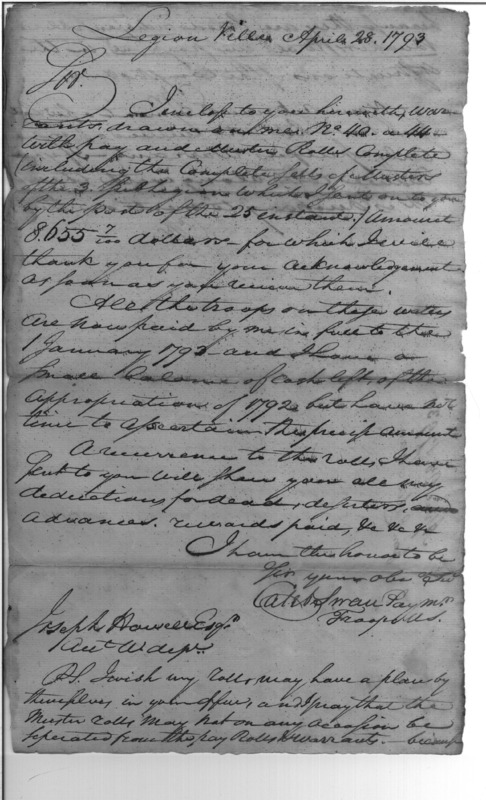 Legion Ville April 28. 1793
Sir.
I inclose to you herewith, War
rants drawn on me No 40. a 44
with pay and Muster Rolls Complete
(including the Complete Rolls of
of the 3 Sub legion which I sent on to you
by the post of the 25 instant.) Amount
8.655 7/100 dollars for which I will
thank you for your acknowledgement
as soon as you receive them.
All the troops on these waters
are now paid by me in full to the
1 January 1793 and I have a
small balance of cash left, of the
appropriation of 1792 but have not
time to ascertain the precise amount
A recurrence to the rolls I have
sent to you will shew you all my
deductions for dead, deserters, and
advances. rewards paid, &c &c &c
I have the honor to be
Sir, your obe Ser
Caleb Swan Paymr
Troops US.
Joseph Howell Esqr
Acct W depr.
P.S. I wish my rolls may have a place by
themselves in your Office, and I pray that the
Muster rolls may not on any occasion be
seperated from the pay Rolls & Warrants.